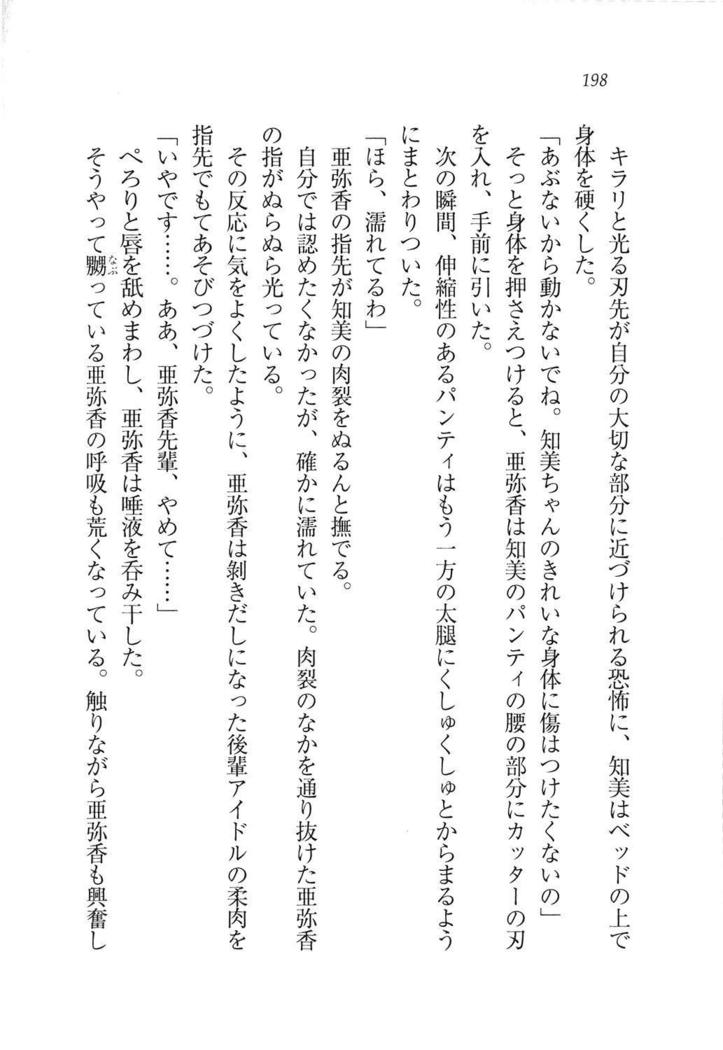 198
キラリと光る刃先が自分の大切な部分に近づけられる恐怖に、知美はベッドの上で
身体を硬くした。
「あぶないから動かないでね。知美ちゃんのきれいな身体に傷はつけたくないの」
そっと身体を押さえつけると、亜弥香は知美のパンティの腰の部分にカッターの刃
を入れ、手前に引いた。
次の瞬間、伸縮性のあるパンティはもう一方の太腿にくしゅくしゅとからまるよう
にまとわりついた。
「ほら、濡れてるわ」
亜弥香の指先が知美の肉裂をぬるんと撫でる。
自分では認めたくなかったが、確かに濡れていた。肉裂のなかを通り抜けた亜弥香
の指がぬらぬら光っている。
その反応に気をよくしたように、亜弥香は剝きだしになった後輩アイドルの柔肉を
指先でもてあそびつづけた。
「いやです……。ああ、亜弥香先輩、やめて……」
ぺろりと唇を舐めまわし、亜弥香は唾液を呑み干した。
そうやって嬲なぶっている亜弥香の呼吸も荒くなっている。触りながら亜弥香も興奮し